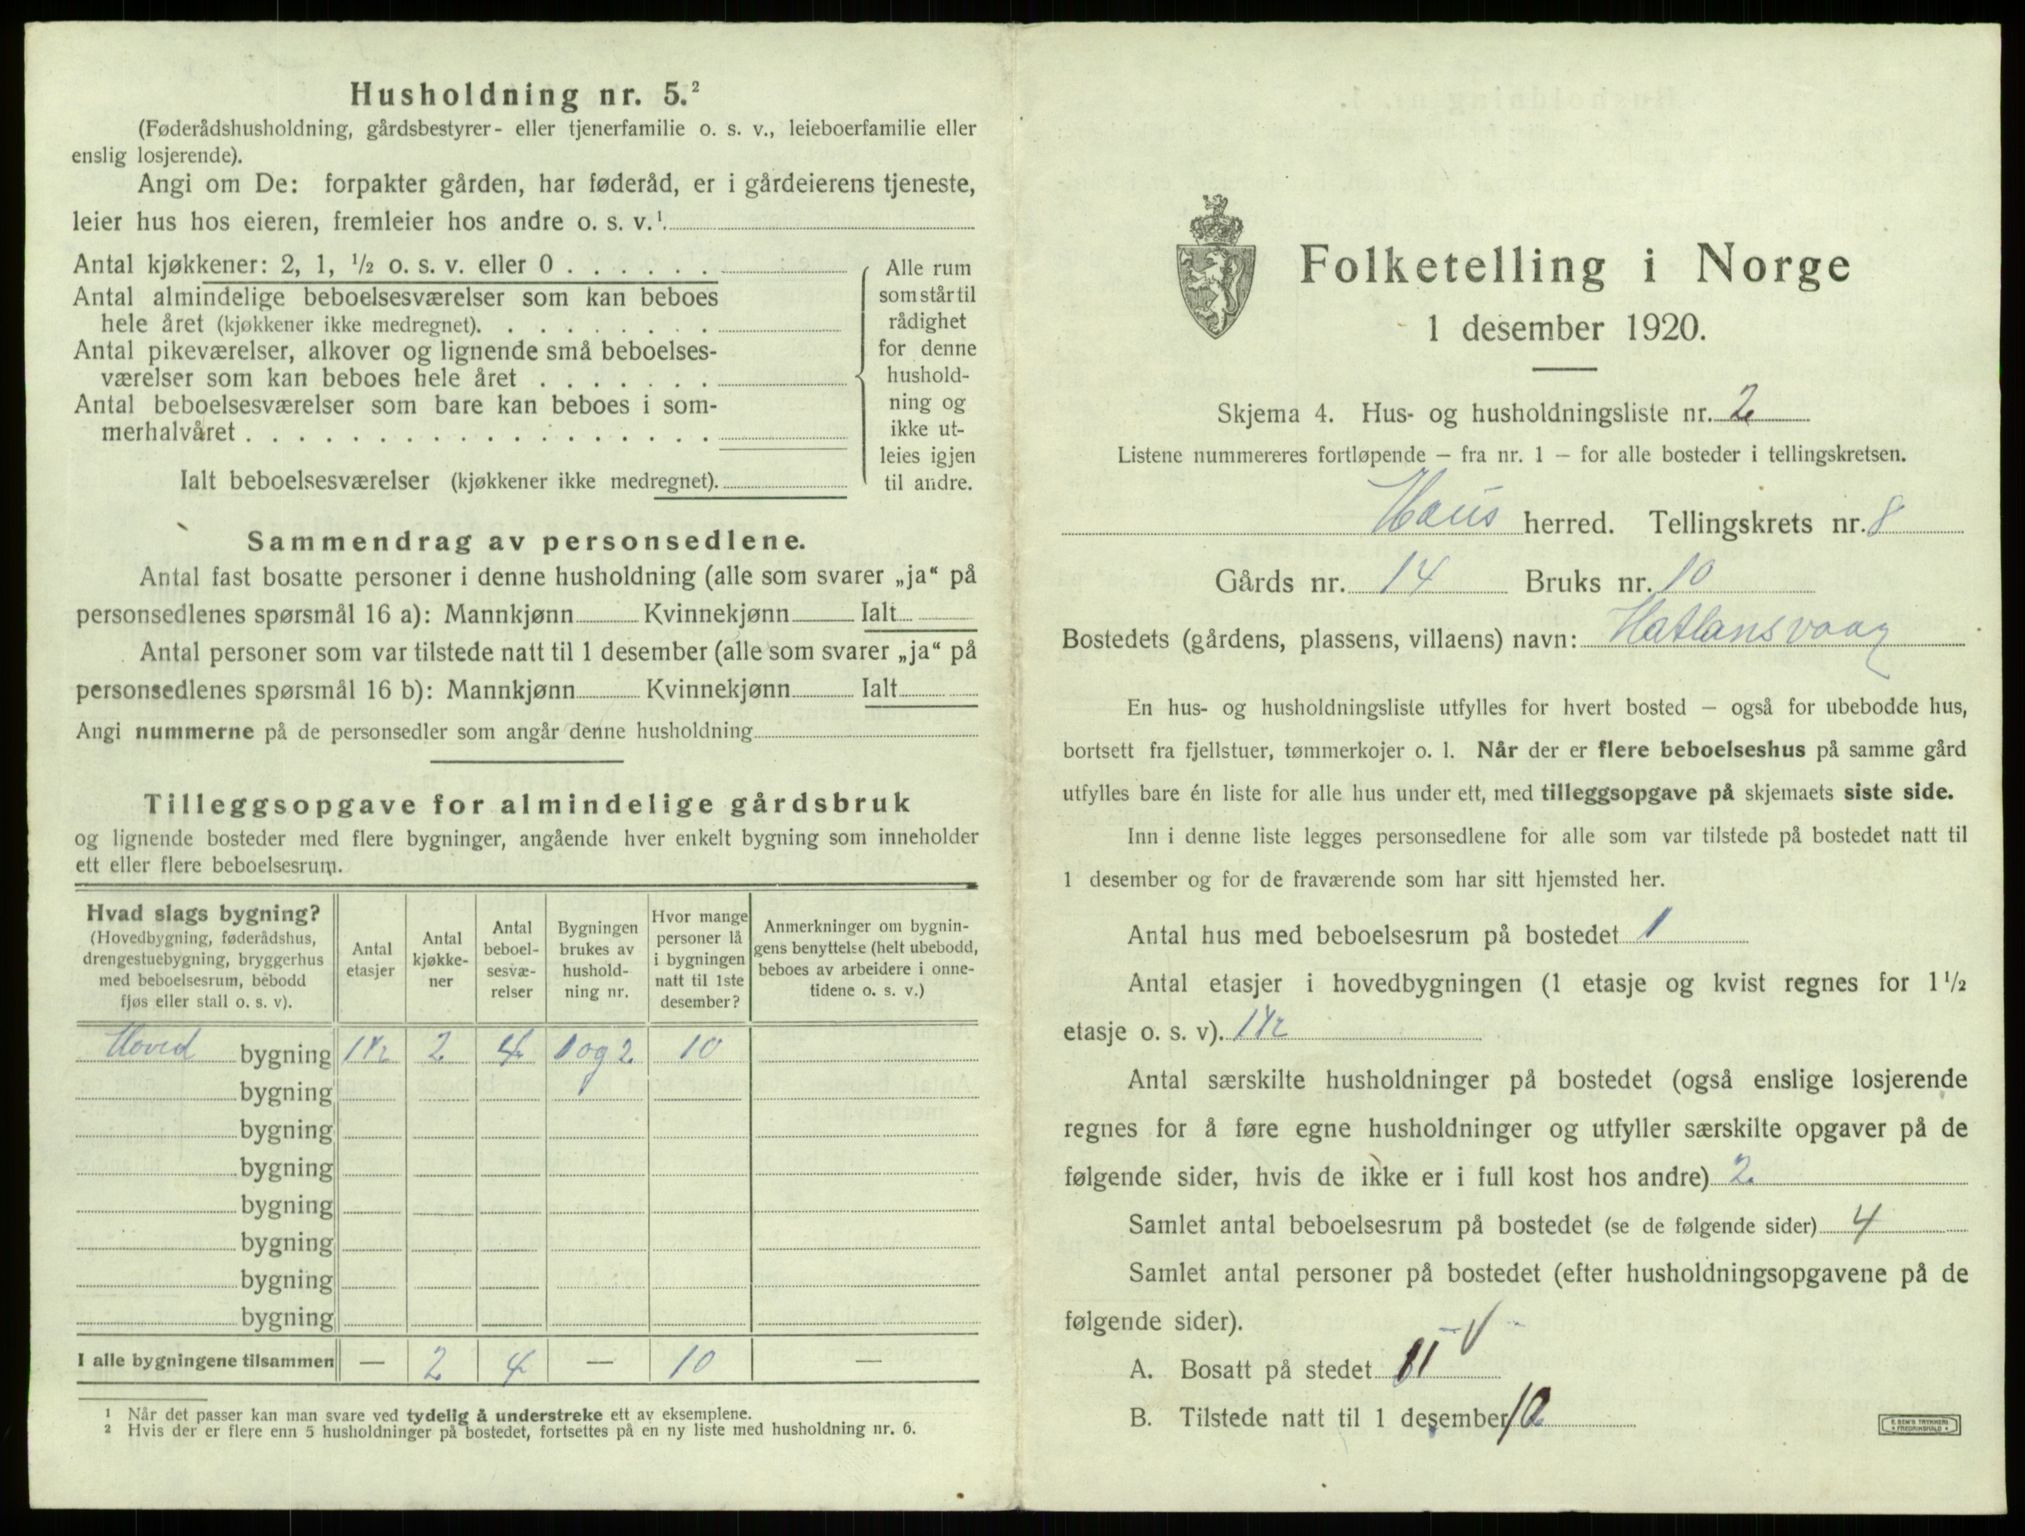 Husholdning nr. 5.²
(Føderådshusholdning, gårdsbestyrer- eller tjenerfamilie o. s. v., leieboerfamilie eller
enslig losjerende).
Angi om De: forpakter gården, har føderåd, er i gårdeierens tjeneste,
leier hus hos eieren, fremleier hos andre o. s. v.¹.
Antal kjøkkener: 2, 1, ½ o. s. v. eller 0 . . . . . .
Antal almindelige beboelsesværelser som kan beboes
hele året (kjøkkener ikke medregnet). . . . . . . . .
Antal pikeværelser, alkover og lignende små beboelses-
værelser som kan beboes hele året . . . . . . .
Antal beboelsesværelser som bare kan beboes i som-
merhalvåret . . . . . . . . . . . . . . . . . .
Ialt beboelsesværelser (kjøkkener ikke medregnet).
Alle rum
som står til
rådighet
for denne
hushold-
ning og
ikke ut-
leies igjen
til andre.
Sammendrag av personsedlene.
Antal fast bosatte personer i denne husholdning (alle som svarer „ja“ på
personsedlenes spørsmål 16 a): Mannkjønn Kvinnekjønn Ialt
Antal personer som var tilstede natt til 1 desember (alle som svarer „ja“ på
personsedlenes spørsmål 16 b): Mannkjønn Kvinnekjønn Ialt
Angi nummerne på de personsedler som angår denne husholdning
Tilleggsopgave for almindelige gårdsbruk
og lignende bosteder med flere bygninger, angående hver enkelt bygning som inneholder
ett eller flere beboelsesrum.
Hvad slags bygning?
(Hovedbygning, føderådshus,
drengestuebygning, bryggerhus
med beboelsesrum, bebodd
fjøs eller stall o. s. v).
Antal
etasjer
Antal
kjøkke-
ner
Antal
beboel-
sesvæ-
relser
Bygningen
brukes av
hushold-
ning nr.
Hvor mange
personer lå
i bygningen
natt til 1ste
desember?
Anmerkninger om bygnin-
gens benyttelse (helt ubebodd,
beboes av arbeidere i onne-
tidene o. s. v.)
Hoved bygning 1½ 2 4 1 og 2 10
bygning
bygning
bygning
bygning
bygning
bygning
bygning
I alle bygningene tilsammen — 2 4 — 10 —
¹ Når det passer kan man svare ved tydelig å understreke ett av eksemplene.
² Hvis der er flere enn 5 husholdninger på bostedet, fortsettes på en ny liste med husholdning nr. 6.
Folketelling i Norge
1 desember 1920.
Skjema 4. Hus- og husholdningsliste nr. 2
Listene nummereres fortløpende – fra nr. 1 – for alle bosteder i tellingskretsen.
Haus herred. Tellingskrets nr. 8
Gårds nr. 14 Bruks nr. 10
Bostedets (gårdens, plassens, villaens) navn: Hatlansvaag
En hus- og husholdningsliste utfylles for hvert bosted – også for ubebodde hus,
bortsett fra fjellstuer, tømmerkojer o. l. Når der er flere beboelseshus på samme gård
utfylles bare én liste for alle hus under ett, med tilleggsopgave på skjemaets siste side.
Inn i denne liste legges personsedlene for alle som var tilstede på bostedet natt til
1 desember og for de fraværende som har sitt hjemsted her.
Antal hus med beboelsesrum på bostedet 1
Antal etasjer i hovedbygningen (1 etasje og kvist regnes for 1½
etasje o. s. v). 1½
Antal særskilte husholdninger på bostedet (også enslige losjerende
regnes for å føre egne husholdninger og utfyller særskilte opgaver på de
følgende sider, hvis de ikke er i full kost hos andre) 2
Samlet antal beboelsesrum på bostedet (se de følgende sider) 4
Samlet antal personer på bostedet (efter husholdningsopgavene på de
følgende sider).
A. Bosatt på stedet 11
B. Tilstede natt til 1 desember 10